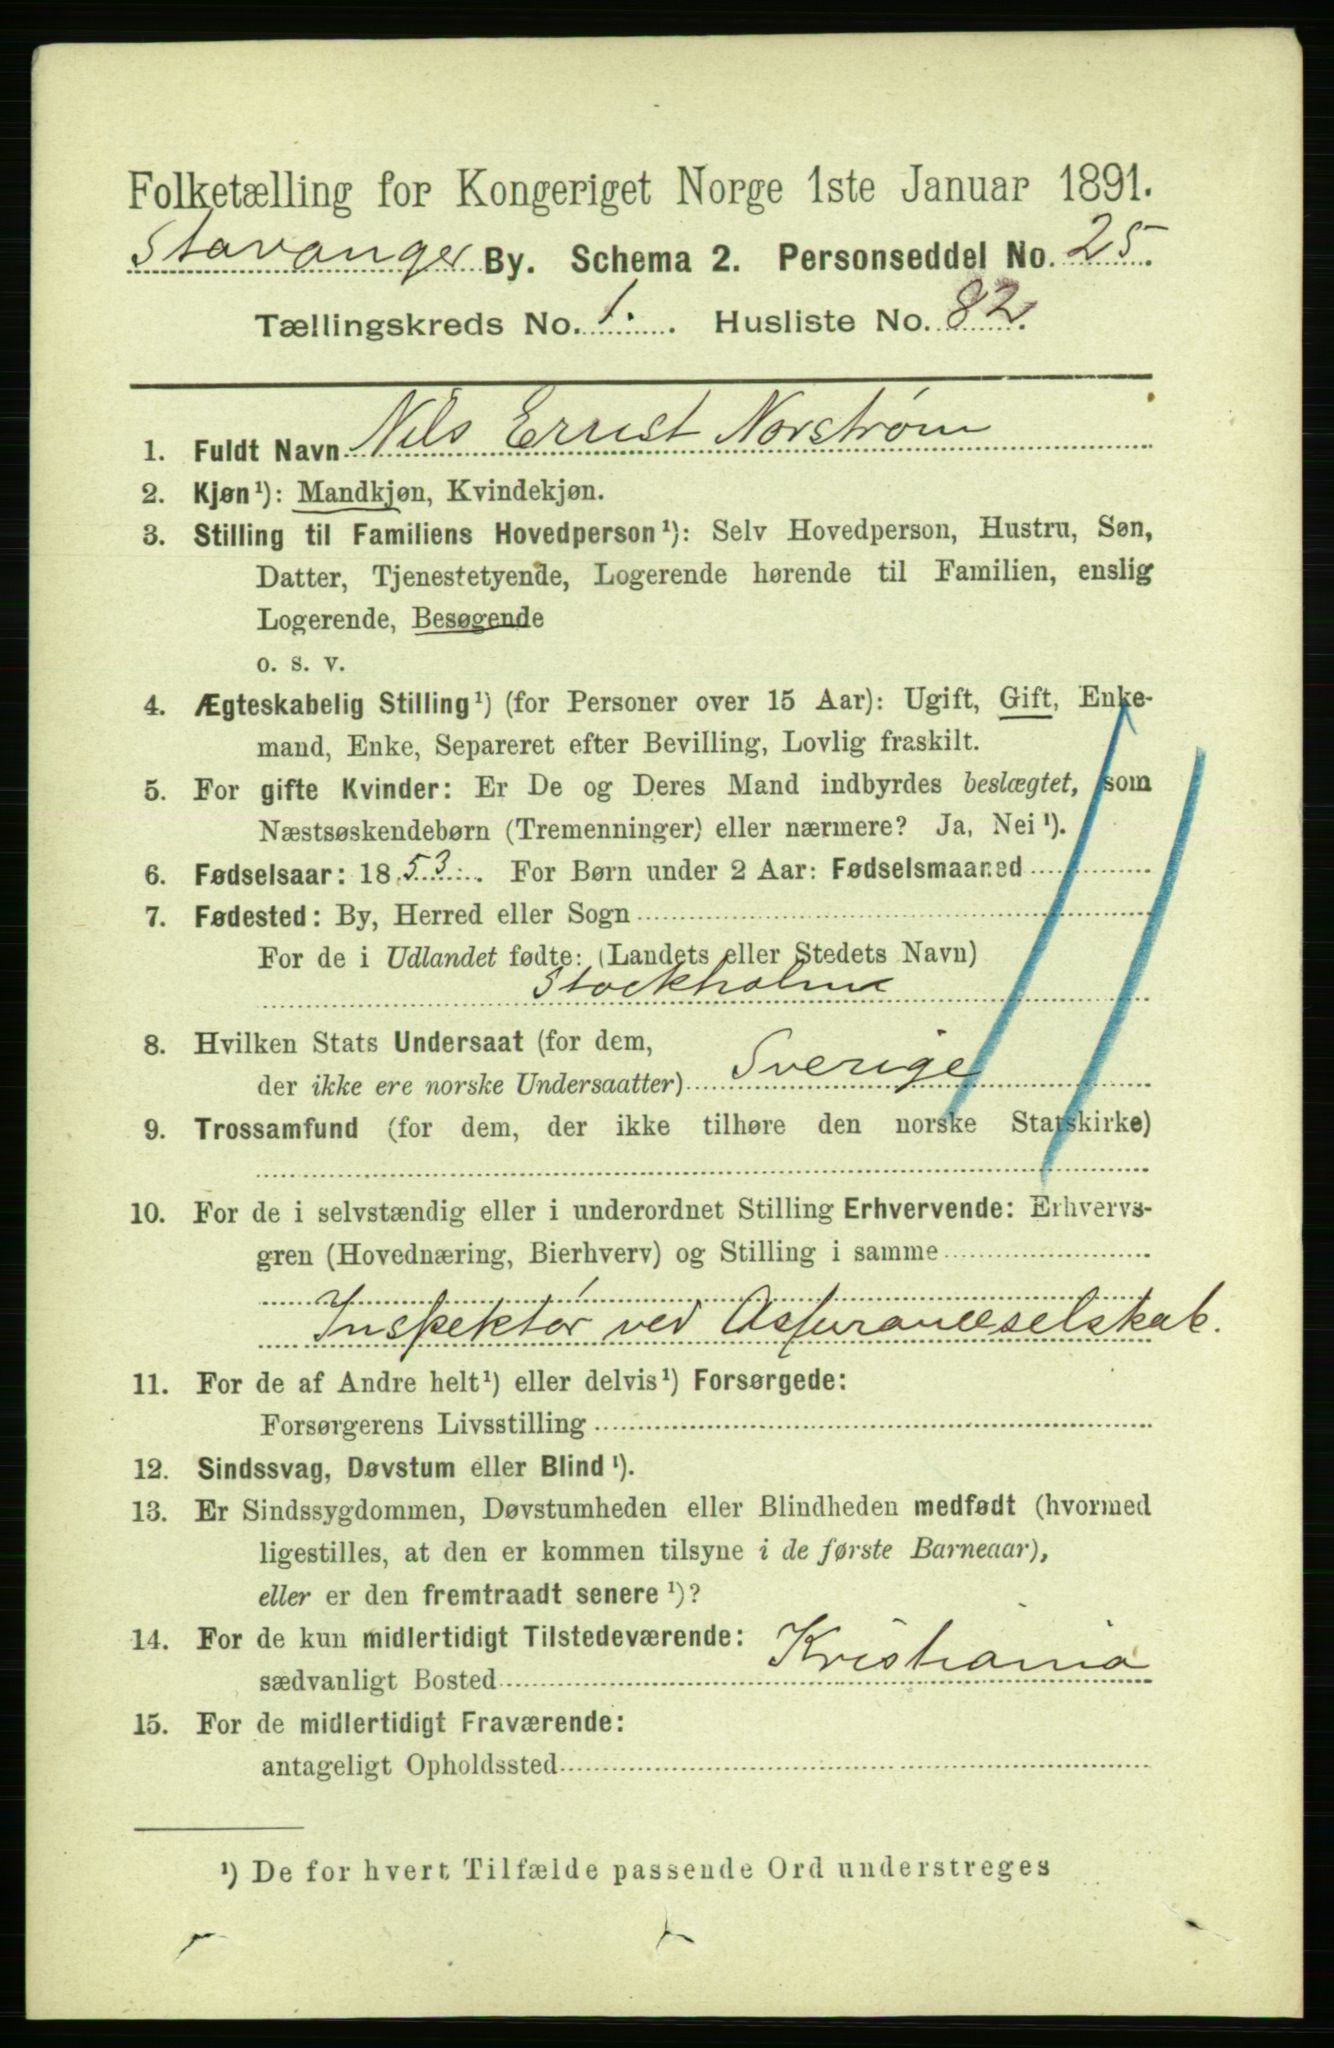 Folketælling for Kongeriget Norge 1ste Januar 1891.
Stavanger By. Schema 2. Personseddel No. 25.
Tællingskreds No. 1. Husliste No. 82.
1. Fuldt Navn Nils Ernst Norstrøm
2. Kjøn¹): Mandkjøn, Kvindekjøn.
3. Stilling til Familiens Hovedperson¹): Selv Hovedperson, Hustru, Søn,
Datter, Tjenestetyende, Logerende hørende til Familien, enslig
Logerende, Besøgende
o. s. v.
4. Ægteskabelig Stilling¹) (for Personer over 15 Aar): Ugift, Gift, Enke-
mand, Enke, Separeret efter Bevilling, Lovlig fraskilt.
5. For gifte Kvinder: Er De og Deres Mand indbyrdes beslægtet, som
Næstsøskendebørn (Tremenninger) eller nærmere? Ja, Nei¹).
6. Fødselsaar: 1853. For Børn under 2 Aar: Fødselsmaaned
7. Fødested: By, Herred eller Sogn
For de i Udlandet fødte: (Landets eller Stedets Navn)
Stockholm
8. Hvilken Stats Undersaat (for dem,
der ikke ere norske Undersaatter) Sverige
9. Trossamfund (for dem, der ikke tilhøre den norske Statskirke)
10. For de i selvstændig eller i underordnet Stilling Erhvervende: Erhvervs-
gren (Hovednæring, Bierhverv) og Stilling i samme
Inspektør ved Assuranceselskab.
11. For de af Andre helt¹) eller delvis¹) Forsørgede:
Forsørgerens Livsstilling
12. Sindssvag, Døvstum eller Blind¹).
13. Er Sindssygdommen, Døvstumheden eller Blindheden medfødt (hvormed
ligestilles, at den er kommen tilsyne i de første Barneaar),
eller er den fremtraadt senere¹)?
14. For de kun midlertidigt Tilstedeværende:
sædvanligt Bosted Kristiania
15. For de midlertidigt Fraværende:
antageligt Opholdssted
¹) De for hvert Tilfælde passende Ord understreges